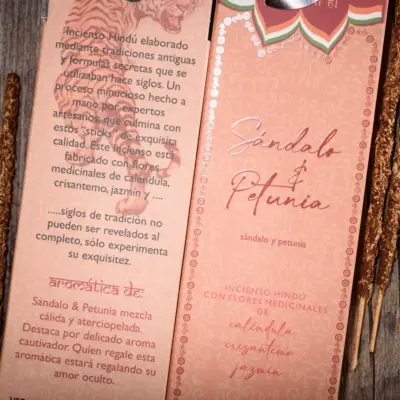 Incienso Hindú elaborado
mediante tradiciones antiguas
y formulas secretas que se
utilizaban hace siglos. Un
proceso minucioso hecho a
mano por expertos
artesanos, que culmina con
estos "sticks" de exquisita
calidad. Este incienso está
fabricado con flores
medicinales de calendula,
crisantemo, jazmín y ....
.....siglos de tradición no
pueden ser revelados al
completo, sólo experimenta
su exquisitez.
aromática de:
Sándalo & Petunia mezcla
cálida y aterciopelada.
Destaca por delicado aroma
cautivador. Quien regale esta
aromática estará regalando su
amor oculto.
Sándalo
&
Petunia
sándalo y petunia
INCIENSO HINDÚ
CON FLORES MEDICINALES
DE
caléndula
crisantemo
jazmín